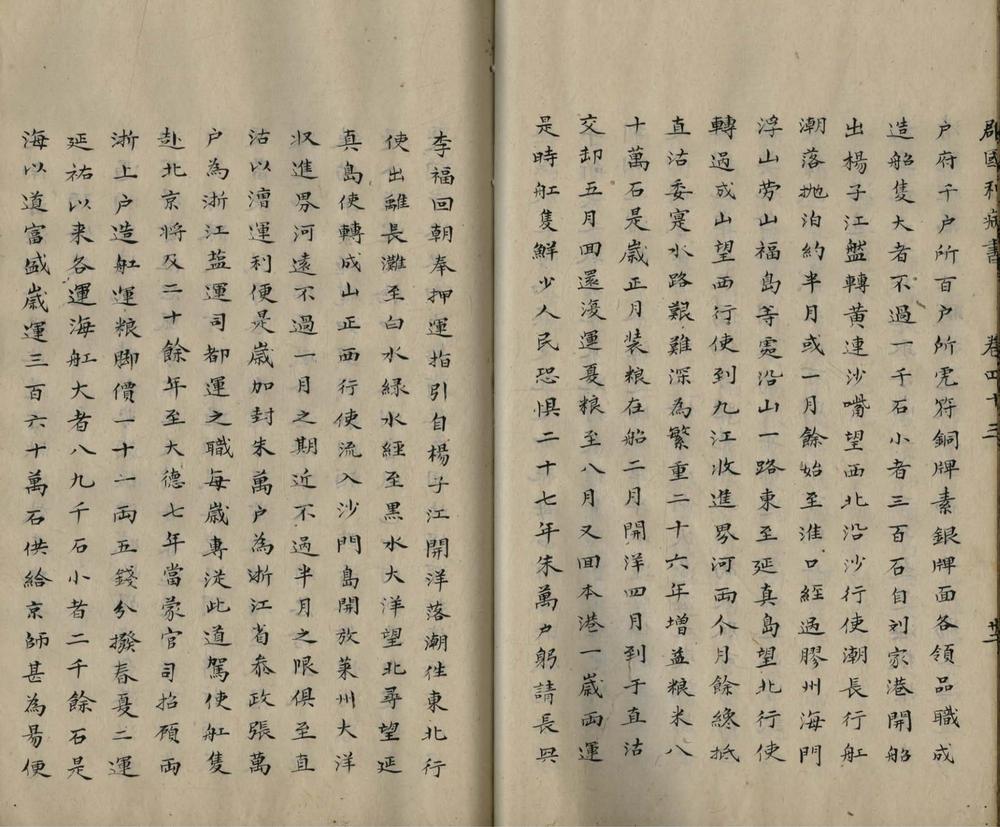 郡國利病書　卷四十三　廿
户府千户所百户所虎符銅牌素銀牌面各領品職成
造船隻大者不過一千石小者三百石自刘家港開船
出楊子江盤轉黄連沙嘴望西北沿沙行使潮長行舡
潮落抛泊約半月或一月餘始至淮口經過膠州海門
浮山劳山福島等處沿山一路東至延真島望北行使
轉過成山望西行使到九江收進界河兩个月餘纔抵
直沽委寔水路艱難深為繁重二十六年增益粮米八
十萬石是歲正月装粮在船二月開洋四月到于直沽
交卸五月回還浚運夏粮至八月又回本港一歲兩運
是時舡隻鮮少人民恐惧二十七年朱萬户躬請長興
李福回朝奉押運指引自楊子江開洋落潮徃東北行
使出離長灘至白水緑水經至黒水大洋望北尋望延
真島使轉成山正西行使流入沙門島開放莱州大洋
収進界河遠不過一月之期近不過半月之限俱至直
沽以漕運利便是歲加封朱萬户為浙江省叅政張萬
户為浙江盐運司都運之職每歲專従此道駕使舡隻
赴北京將及二十餘年至大德七年當蒙官司招顧兩
浙上户造舡運粮脚價一十一兩五錢分撥春夏二運
延祐以来各運海舡大者八九千石小者二千餘石是
海以道富盛歲運三百六十萬石供給京師甚為昜便